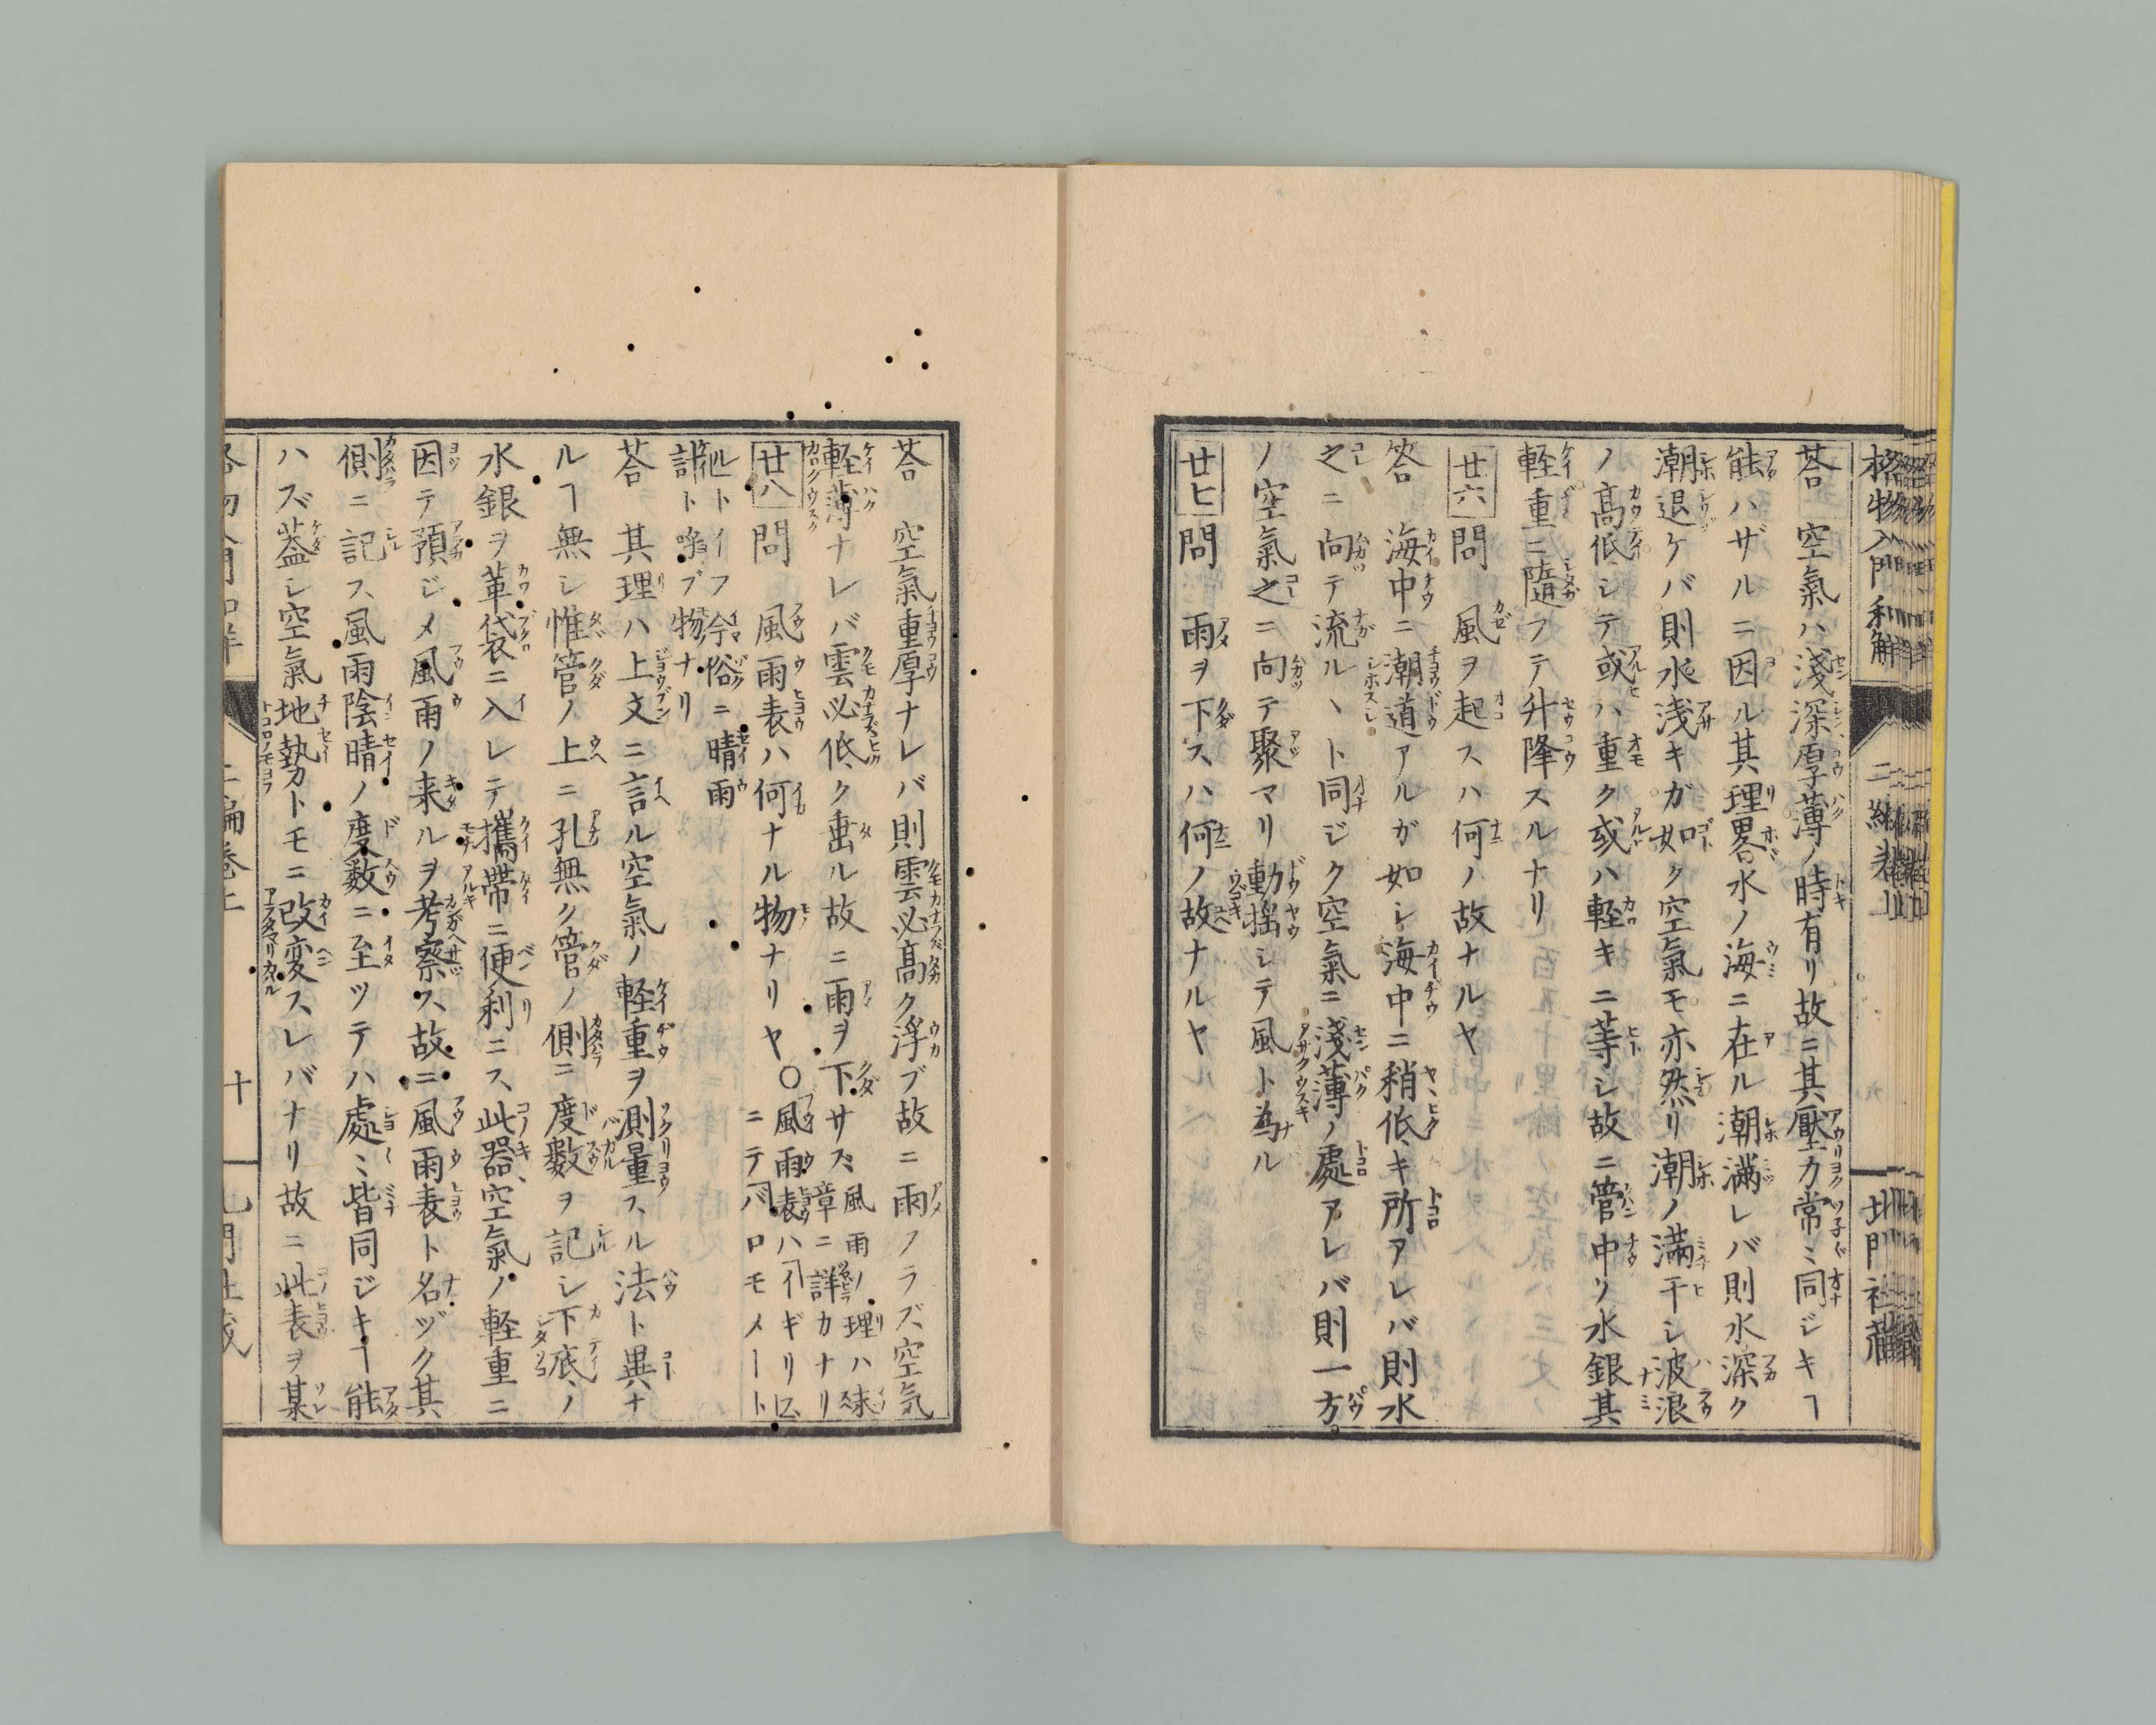 格物入門和解 二編卷上 北門社藏
荅 空氣ハ淺深厚薄ノ時有リ故ニ其壓力常ミ同ジキヿ
能ハザルニ因ル其理畧水ノ海ニ在ル潮滿レバ則水深ク
潮退ケバ則水浅キガ如ク空氣モ亦然リ潮ノ満干シ波浪
ノ高低シテ或ハ重ク或ハ軽キニ等シ故ニ管中ノ水銀其
軽重ニ隨フテ升降スルナリ
廿六 問 風ヲ起スハ何ノ故ナルヤ
答 海中ニ潮道アルガ如シ海中ニ稍低キ所アレバ則水
之ニ向テ流ルヽト同ジク空氣ニ淺薄ノ處アレバ則一方
ノ空氣之ニ向テ聚マリ動揺シテ風ト為ル
廿七 問 雨ヲ下スハ何ノ故ナルヤ
荅 空氣重厚ナレバ則雲必高ク浮ブ故ニ雨フラズ空気
軽薄ナレバ雲必低ク垂ル故ニ雨ヲ下サス 風雨ノ理ハ
章ニ詳カナリ
廿八 問 風雨表ハ何ナル物ナリヤ ○風雨表ハイギリス
ニテバロモメート
ルトイフ今俗ニ晴雨
計ト喚ブ物ナリ
荅 其理ハ上文ニ言ル空氣ノ軽重ヲ測量スル法ト異ナ
ルヿ無シ惟管ノ上ニ孔無ク管ノ側ニ度數ヲ記シ下底ノ
水銀ヲ革袋ニ入レテ攜帯ニ便利ニス此器空氣ノ軽重ニ
因テ預ジメ風雨ノ来ルヲ考察ス故ニ風雨表ト名ヅク其
側ニ記ス風雨陰晴ノ度數ニ至ツテハ處ミ皆同ジキヿ能
ハズ蓋シ空氣地勢トモニ改変スレバナリ故ニ此表ヲ某
十